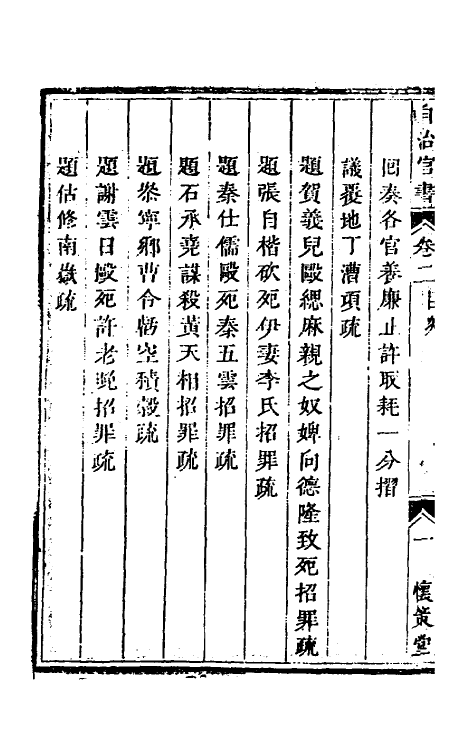 自治官書 卷二 目錄 一 懷策堂
囘奏各官養廉止許取耗一分摺
議覆地丁漕項疏
題賀義兒毆緦麻親之奴婢向德隆致死招罪疏
題張自楷砍死伊妻李氏招罪疏
題秦仕儒毆死秦五雲招罪疏
題石承堯謀殺黃天相招罪疏
題叅寧鄉曹令虧空積穀疏
題謝雲日毆死許老晚招罪疏
題估修南嶽疏